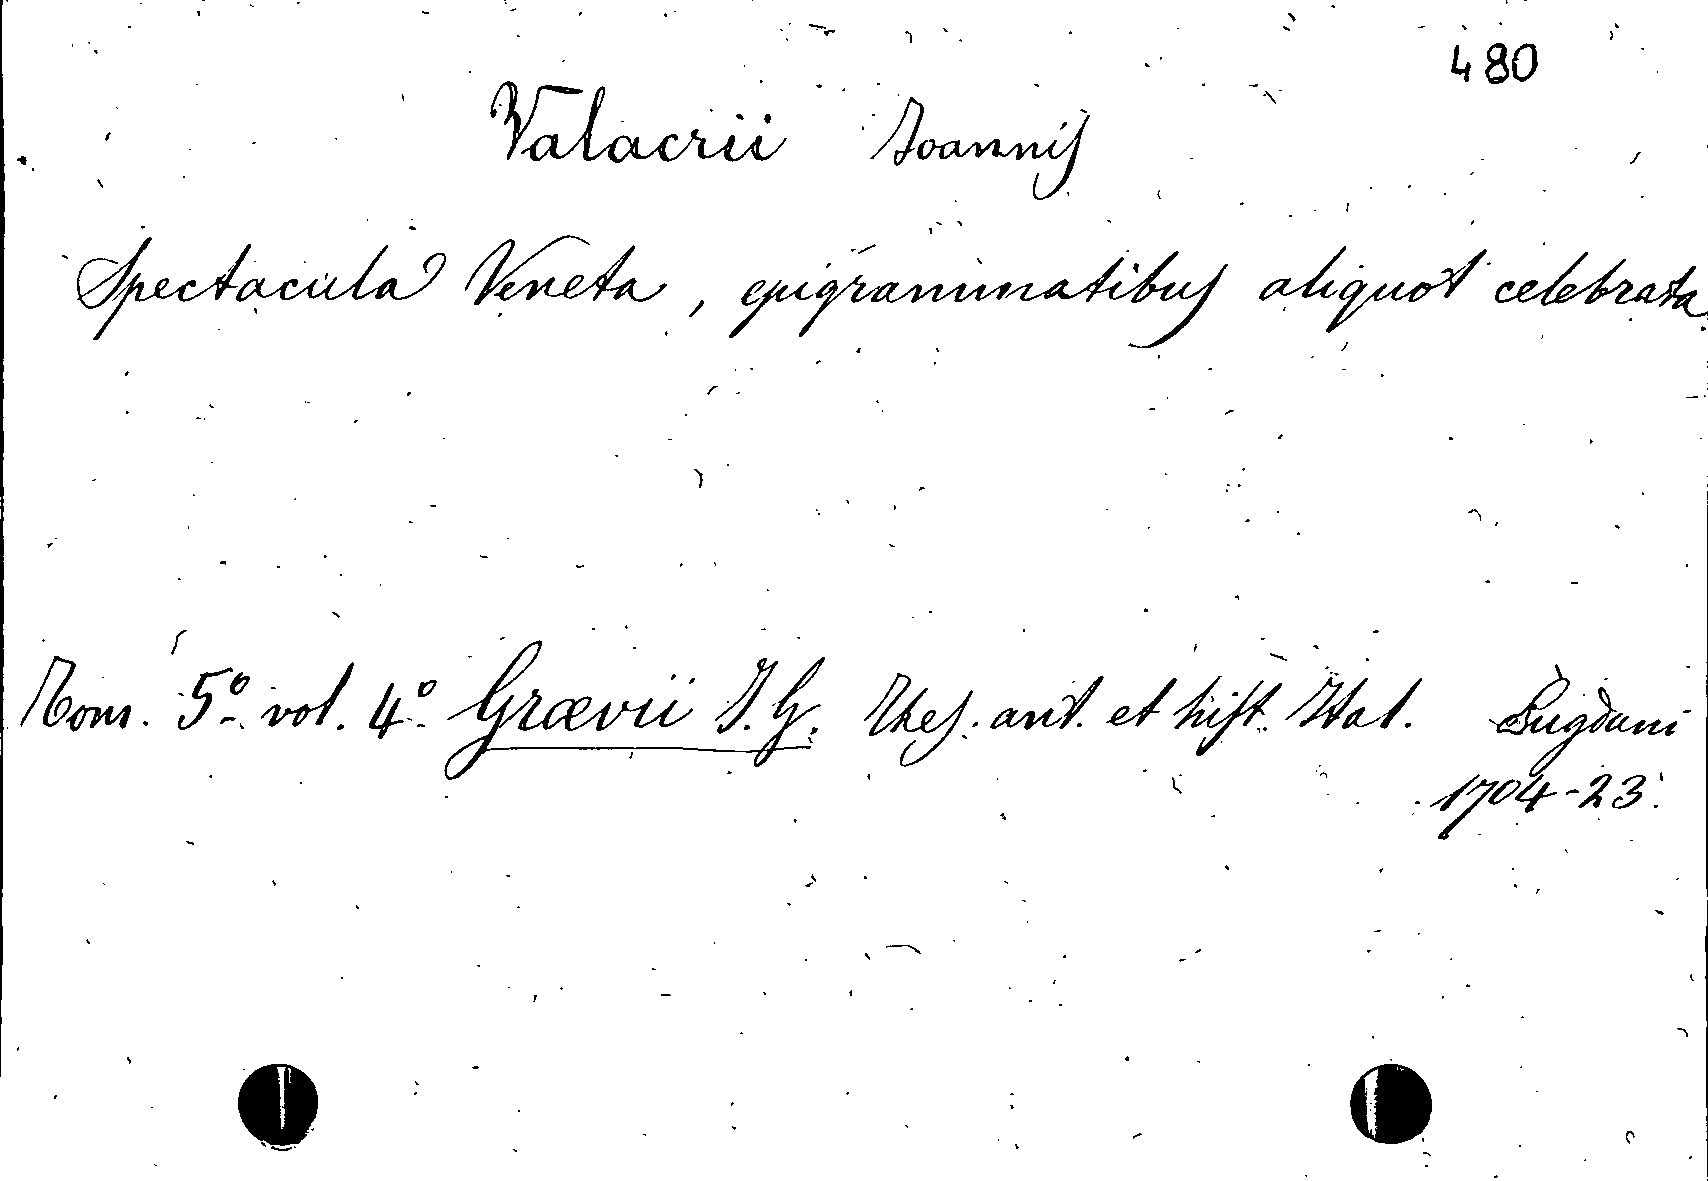 480
Valacrii Joannis
Spectacula Veneta, epigrammatibus aliquot celebrata
Tom. 5º vol. 4º Grævii J. G. Thes. ant. et hist. Ital. Lugduni
1704-23.